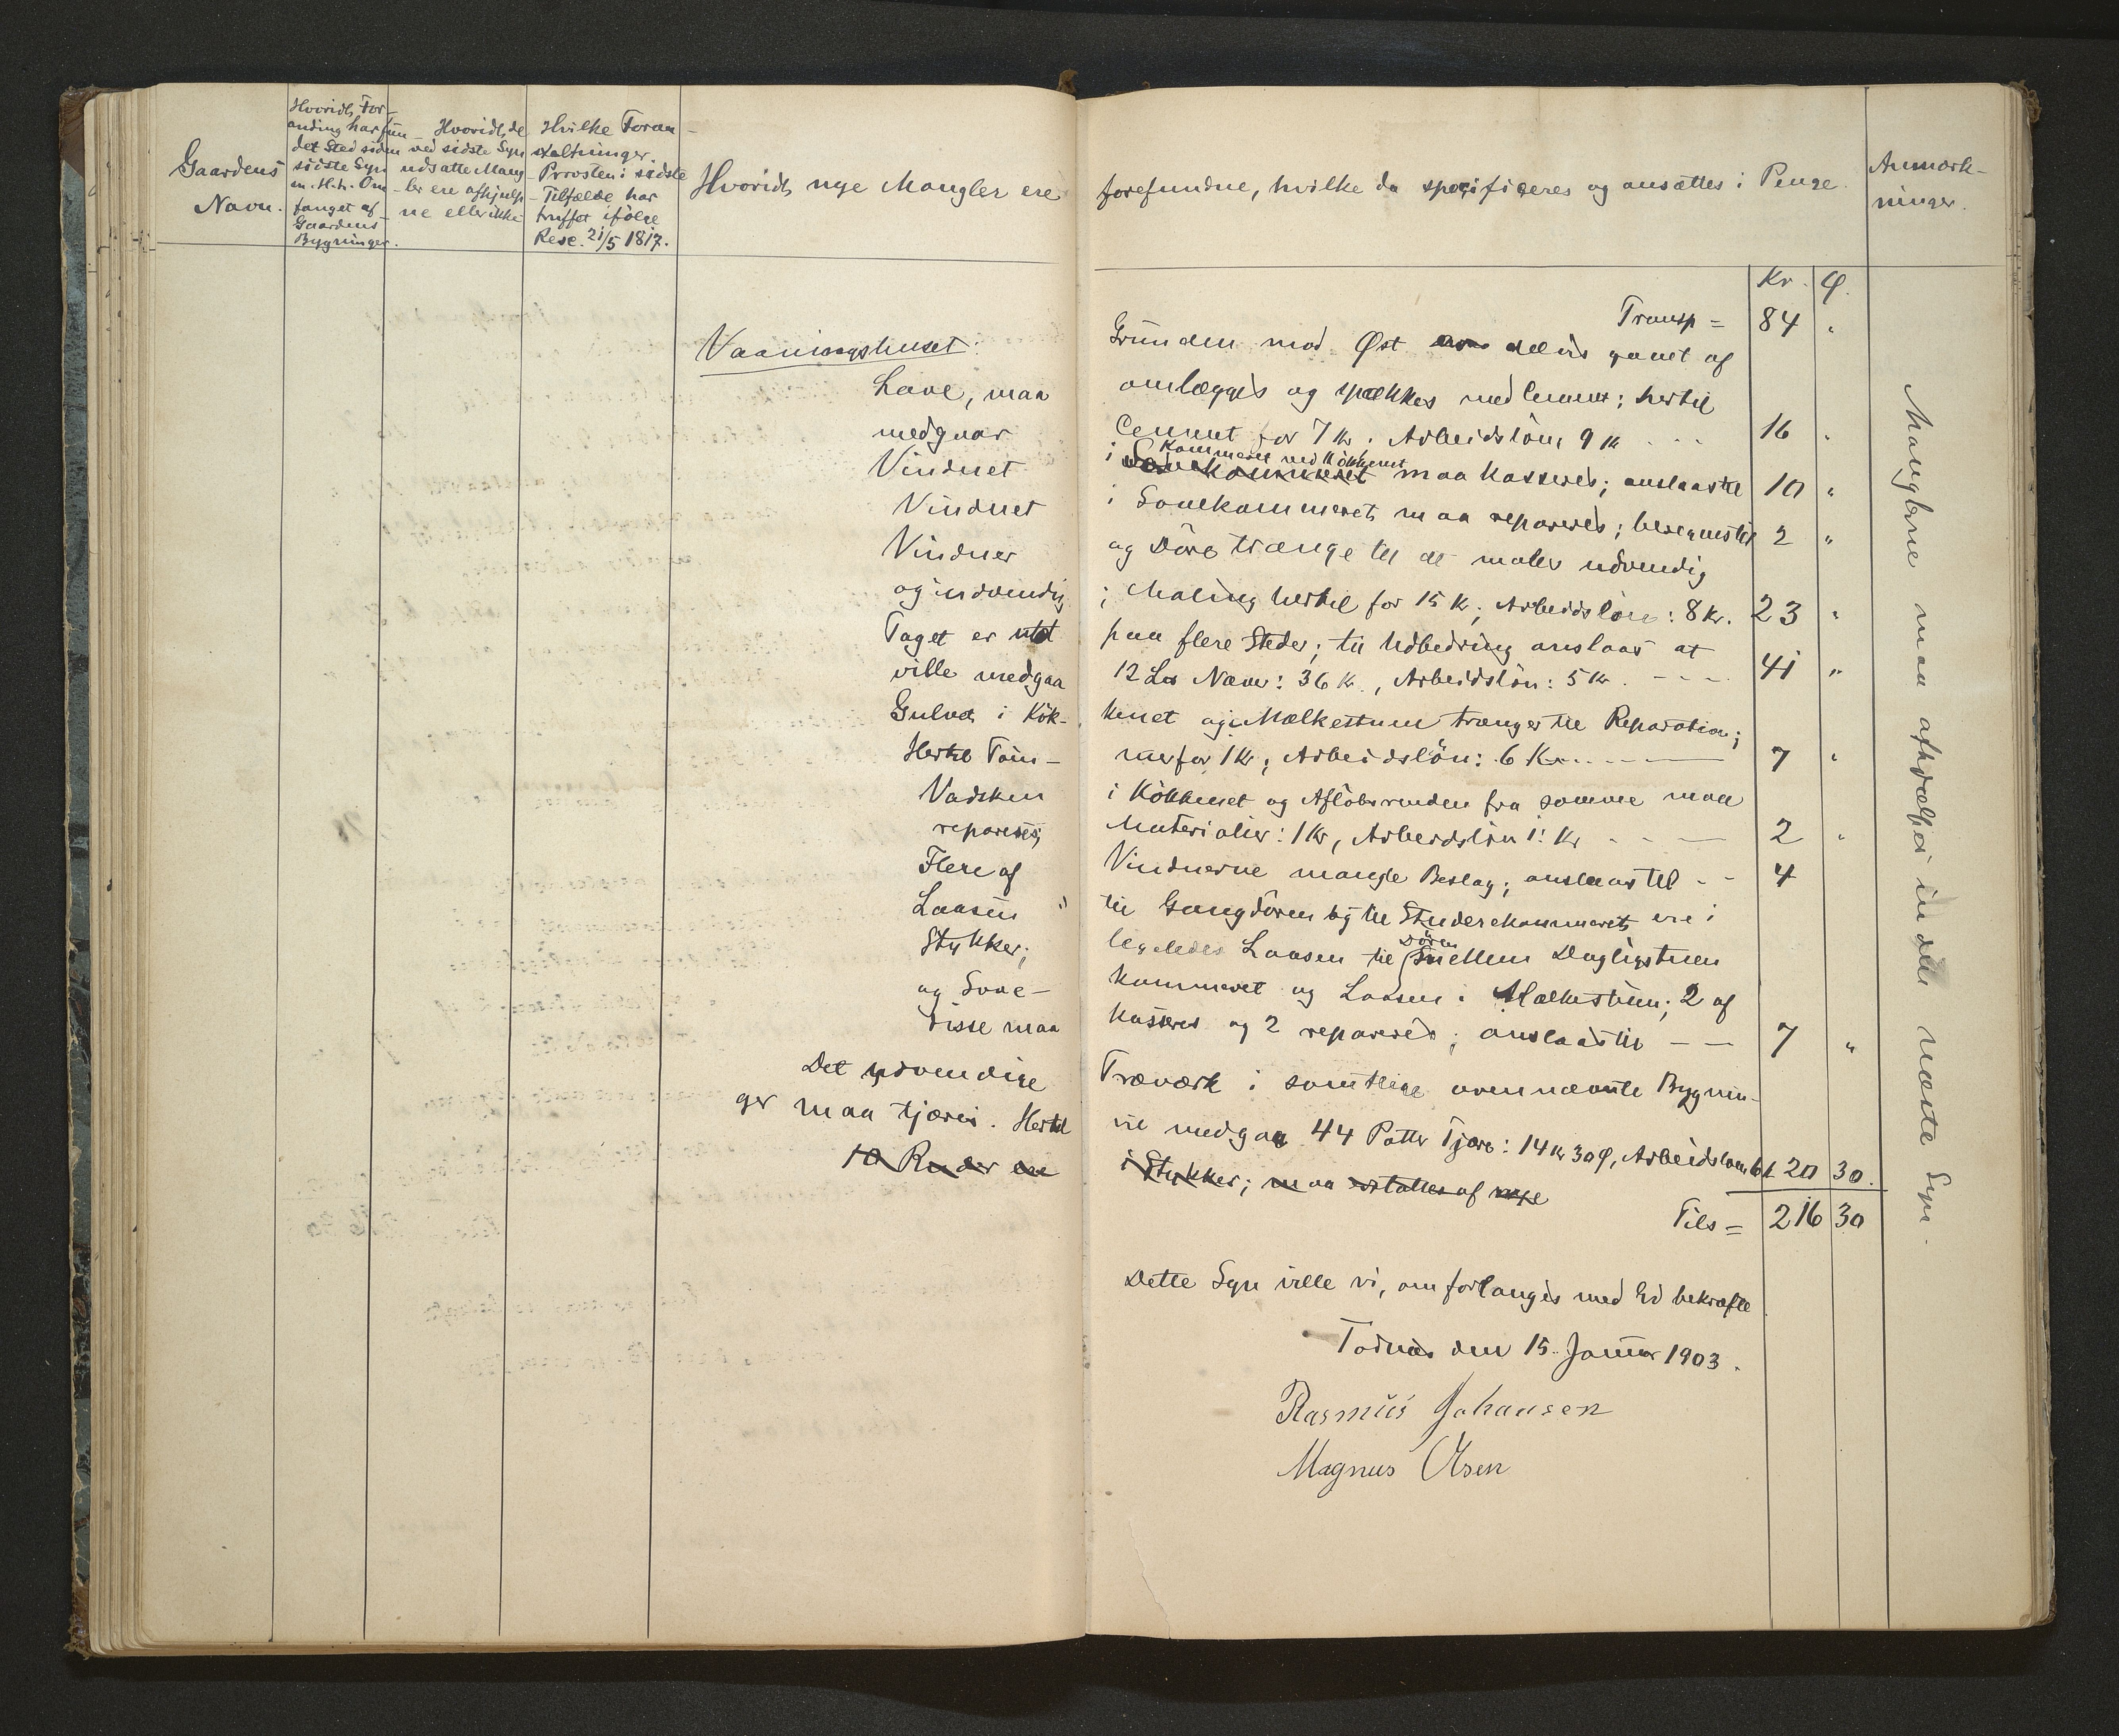 Gaardens
Navn.
Hvorids For-
anding har fun-
det Sted siden
sidste Syn
m. H. t. Om-
fanget af
Gaardens
Bygninger.
Hvorids de
ved sidste Syn
udsatte Mang-
ler ere afhjulp-
ne eller ikke
Hvilke Foran-
staltninger
Provsten i sidste
Tilfælde har
truffet ifölge
Resc. 21/5 1817.
Hvorids nye Mangler ere forefundne, hvilke da specificeres og ansættes i Penge.
Anmærk-
ninger.
Kr. Ø.
Transp = 84 "
Vaaningshuset: Grunden mod Øst delvis
Lave, maa omlægges og spækkes med Cement; hertil
medgaar Cement for 7 Kr. Arbeidslön 9 Kr - - - 16 "
Kammeret ved Kökkenet
Vinduet i Sovekammeret maa kasseres; anslaaes til 10 "
Vinduet i Sovekammeret maa repareres; beregnes til 2 "
Vinduer og Döre trænge til at males udvendig
og indvendig; Maling hertil for 15 Kr, Arbeidslön: 8 Kr. 23 "
Taget er utæt paa flere Steder; til Udbedring anslaaes at
ville medgaa 12 Læs Næver: 36 Kr., Arbeidslön: 5 Kr. - - - 41 "
Gulvet i Kök- kenet og Melkestuen trænger til Reparation;
Hertil Töm- mer for 1 Kr, Arbeidslön: 6 Kr. - - - 7 "
Vasken i Kökkenet og Aflöbsrenden fra samme maa
repareres; Materialier: 1 Kr, Arbeidslön 1 Kr - - - 2 "
Flere af Vinduerne mangle Beslag; anslaaes til - - 4
Laasen til Gangdören og til Studerekammeret ere i
Dören
Stykker; ligeledes Laasen til mellem Dagligstuen
og Sove- kammeret og Laasen i Mælkestuen; 2 af
disse maa kasseres og 2 repareres; anslaaes til - - 7 "
Det udvendige Træværk i samtlige ovennævnte Bygnin-
ger maa tjæres. Hertil vil medgaa 44 Potter Tjære: 14 Kr 30 Ø, Arbeidslön 6 Kr 20 30.
10 Ruder ere i Stykker; maa erstattes af nye
Tils = 216 30
Dette Syn ville vi, om forlanges med Ed bekræfte
Todnæs den 15. Januar 1903.
Rasmus Johansen
Magnus Olsen
Manglerne maa afhjælpes inden næste Syn.